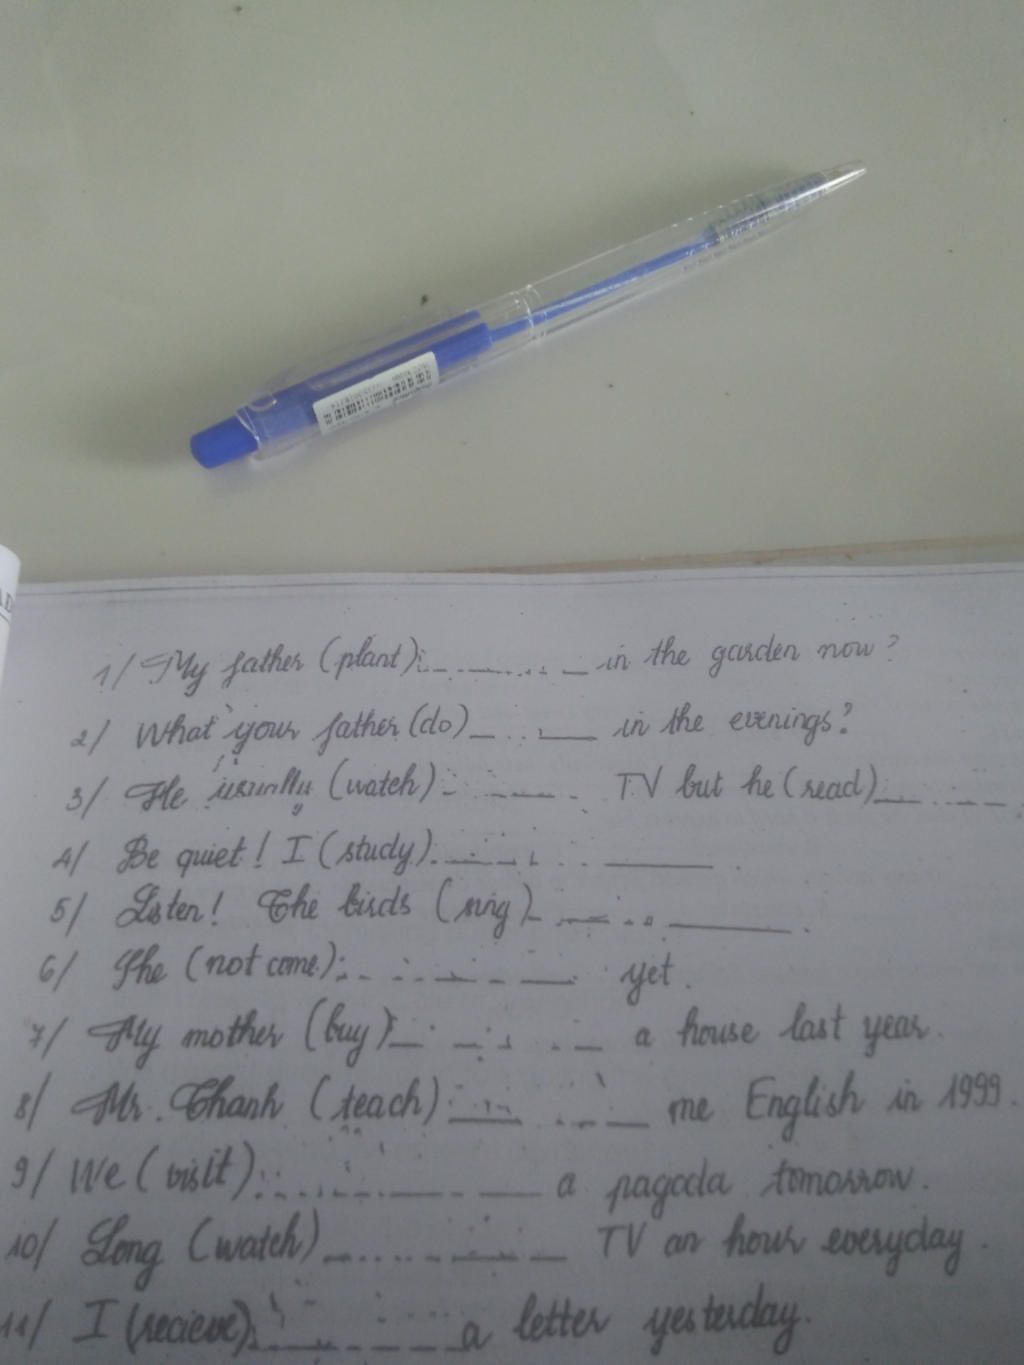 1/ My father (plant) in the garden now?
2/ What your father (do) in the evenings?
3/ He usually (watch) TV but he (read)
4/ Be quiet! I (study)
5/ Listen! The birds (sing)
6/ She (not come) yet.
7/ My mother (buy) a house last year.
8/ Mr. Thanh (teach) me English in 1999.
9/ We (visit) a pagoda tomorrow.
10/ Long (watch) TV an hour everyday.
11/ I (recieve) a letter yesterday.